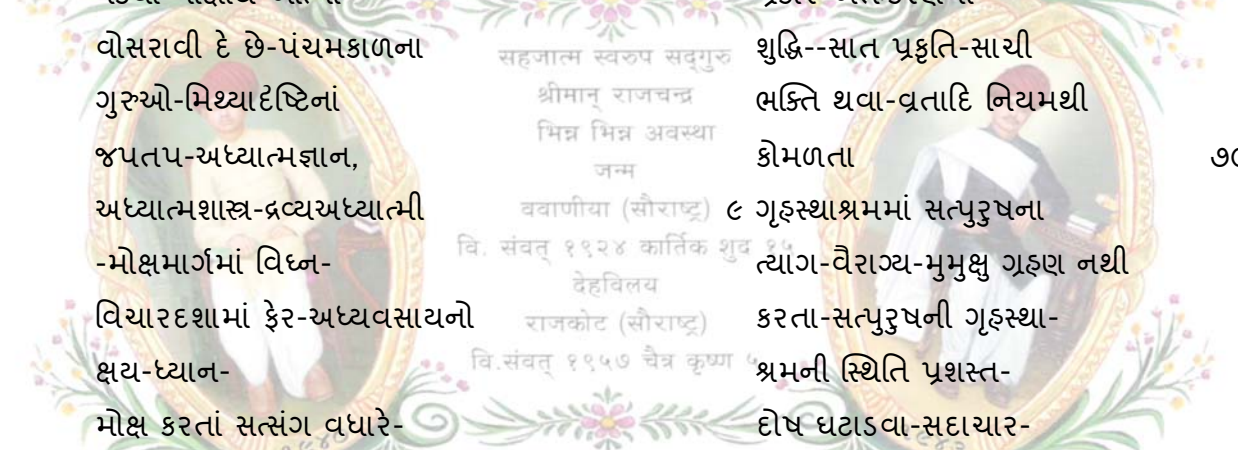 વોસરાવી દે છે-પંચમકાળના
ગુરુઓ-મિથ્યાદૃષ્ટિનાં
જપતપ-અધ્યાત્મજ્ઞાન,
અધ્યાત્મશાસ્ત્ર-દ્રવ્યઅધ્યાત્મી
-મોક્ષમાર્ગમાં વિઘ્ન-
વિચારદશામાં ફેર-અધ્યવસાયનો
ક્ષય-ધ્યાન-
મોક્ષ કરતાં સત્સંગ વધારે-
सहजात्म स्वरुप सद्‌गुरु
श्रीमान् राजचन्द्र
भिन्न भिन्न अवस्था
जन्म
ववाणीया (सौराष्ट्र)
वि. संवत् १९२४ कार्तिक शुद १५
देहविलय
राजकोट (सौराष्ट्र)
वि.संवत् १९५७ चैत्र कृष्ण ५
શુદ્ધિ--સાત પ્રકૃતિ-સાચી
ભક્તિ થવા-વ્રતાદિ નિયમથી
કોમળતા
૯ ગૃહસ્થાશ્રમમાં સત્પુરુષના
ત્યાગ-વૈરાગ્ય-મુમુક્ષુ ગ્રહણ નથી
કરતા-સત્પુરુષની ગૃહસ્થા-
શ્રમની સ્થિતિ પ્રશસ્ત-
દોષ ઘટાડવા-સદાચાર-